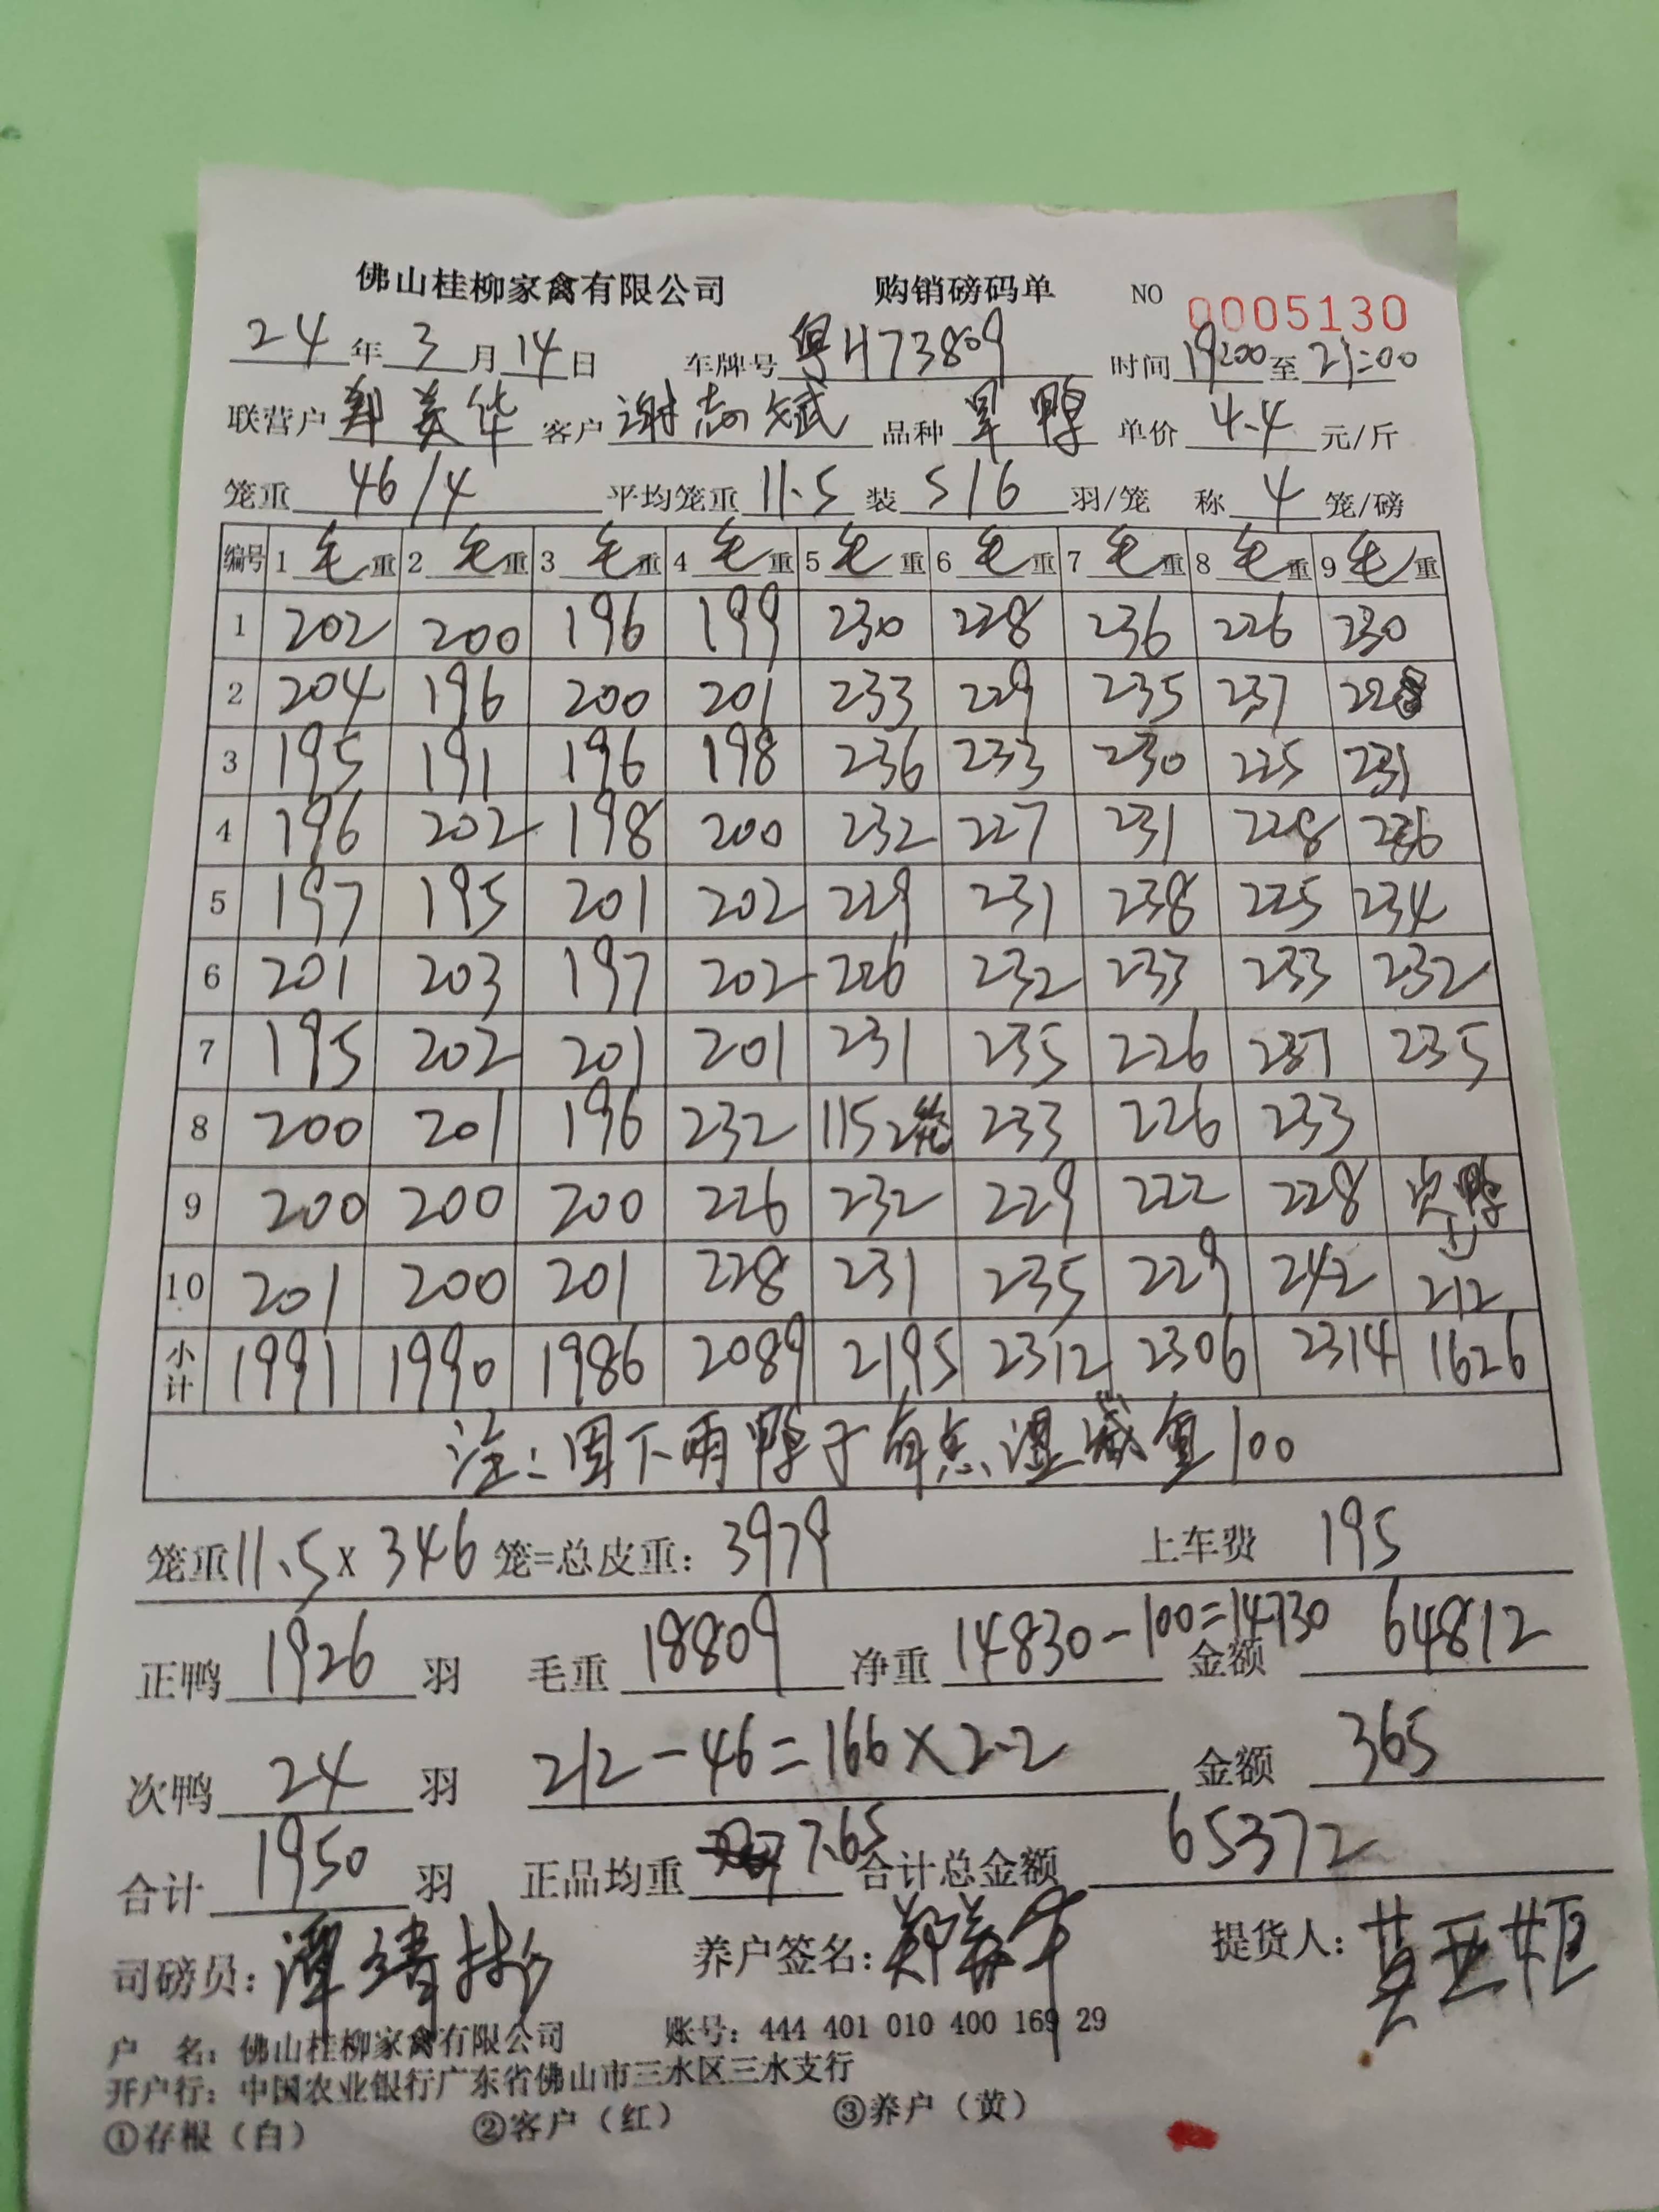 佛山桂柳家禽有限公司 购销磅码单 NO 0005130
24年3月14日 车牌号 粤H73809 时间 19:00至21:00
联营户 郑美华 客户 谢志斌 品种 旱鸭 单价 4.4 元/斤
笼重 46/4 平均笼重 11.5 装 5/6 羽/笼 称 4 笼/磅
编号 1毛重 2毛重 3毛重 4毛重 5毛重 6毛重 7毛重 8毛重 9毛重
1 202 200 196 199 230 228 236 226 230
2 204 196 200 201 233 229 235 237 228
3 195 191 196 198 236 233 230 225 231
4 196 202 198 200 232 227 231 228 236
5 197 195 201 202 229 231 238 225 234
6 201 203 197 202 226 232 233 233 232
7 195 202 201 201 231 235 226 237 235
8 200 201 196 232 115 2笼 233 226 233
9 200 200 200 226 232 229 222 228 次鸭
10 201 200 201 228 231 235 229 242 212
小计 1991 1990 1986 2089 2195 2312 2306 2314 1626
注:因下雨鸭子有点湿减重100
笼重11.5×346笼=总皮重:3979 上车费 195
正鸭 1926 羽 毛重 18809 净重 14830-100=14730 金额 64812
次鸭 24 羽 212-46=166×2.2 金额 365
合计 1950 羽 正品均重 7.65 合计总金额 65372
司磅员: 养户签名:郑美华 提货人:
户 名:佛山桂柳家禽有限公司 账号:444 401 010 400 169 29
开户行:中国农业银行广东省佛山市三水区三水支行
①存根(白) ②客户(红) ③养户(黄)